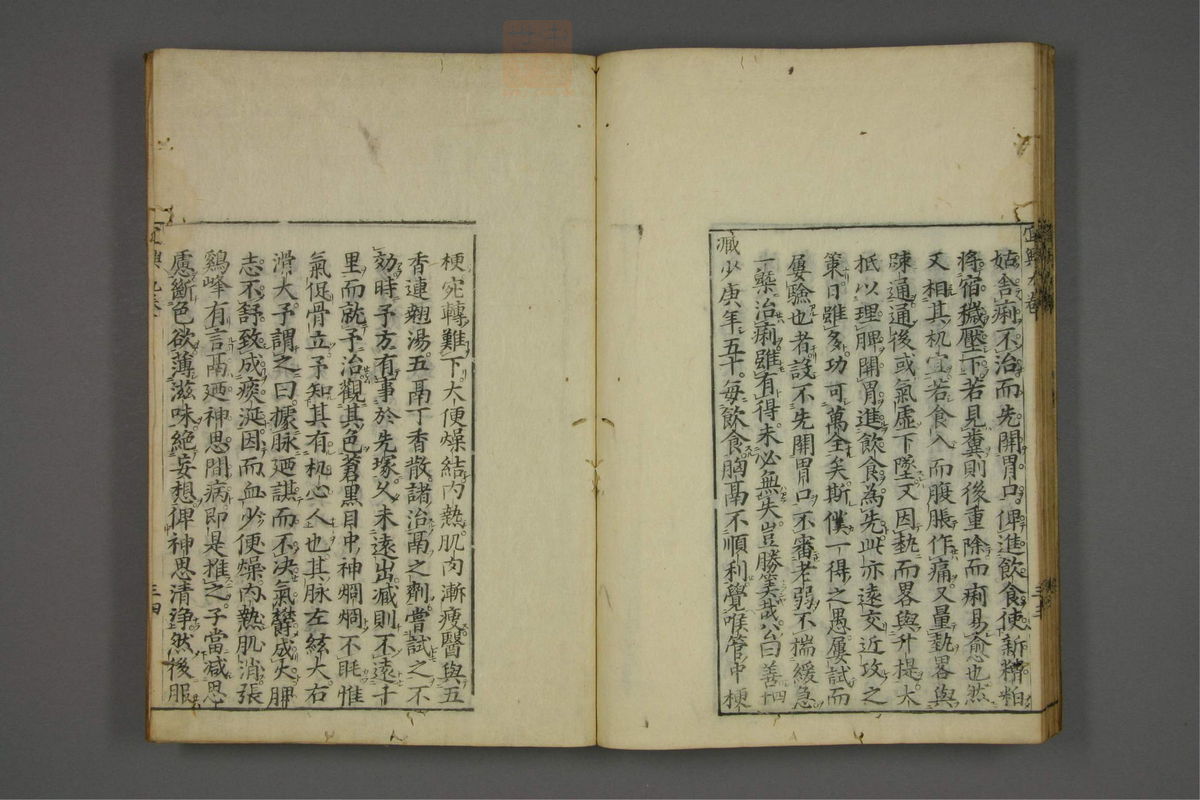 姑舍痢不治而先開胃口俾進飲食使新糟粕
將宿穢壓下若見糞則後重除而痢易愈也然
又相其机宜若食入而腹脹作痛又量熱畧與
疎通通後或氣虛下墜又因熱而畧與升提大
抵以理脾開胃進飲食為先此亦遠交近攻之
策日雖多功可萬全矣斯僕一得之愚屢試而
屢驗也者設不先開胃口不審老弱不揣緩急
一槩治痢雖有得未必無失豈勝筭哉公曰善
臧少庚年五十每飲食胸鬲不順利覺喉管中梗
梗宛轉難下大便燥結内熱肌肉漸瘦醫與五
香連翹湯五鬲丁香散諸治鬲之劑嘗試之不
効時予方有事於先塚久未遠出臧則不遠千
里而就予治觀其色蒼黑目中神烱烱不眊惟
氣促骨立予知其有机心人也其脉左絃大右
滑大予謂之曰據脉廼謀而不决氣欝成火脾
志不舒致成痰涎因而血少便燥内熱肌消張
鷄峰有言鬲廼神思間病即是推之子當减思
慮斷色欲薄滋味絶妄想俾神思清淨然後服
三四